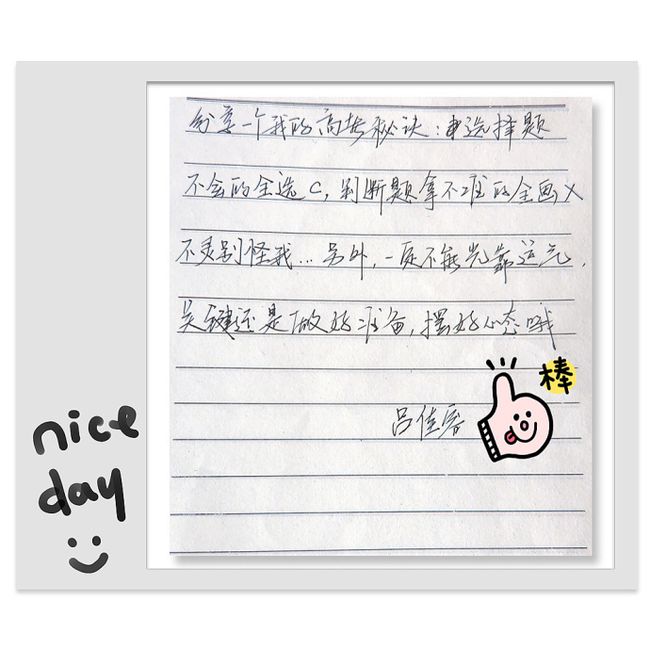 分享一个我的高考秘诀：选择题
不会的全选C，判断题拿不准的全画X
不灵别怪我...另外，一定不能光靠运气，
关键还是做好准备，摆好心态哦
吕佳容
棒
nice
day